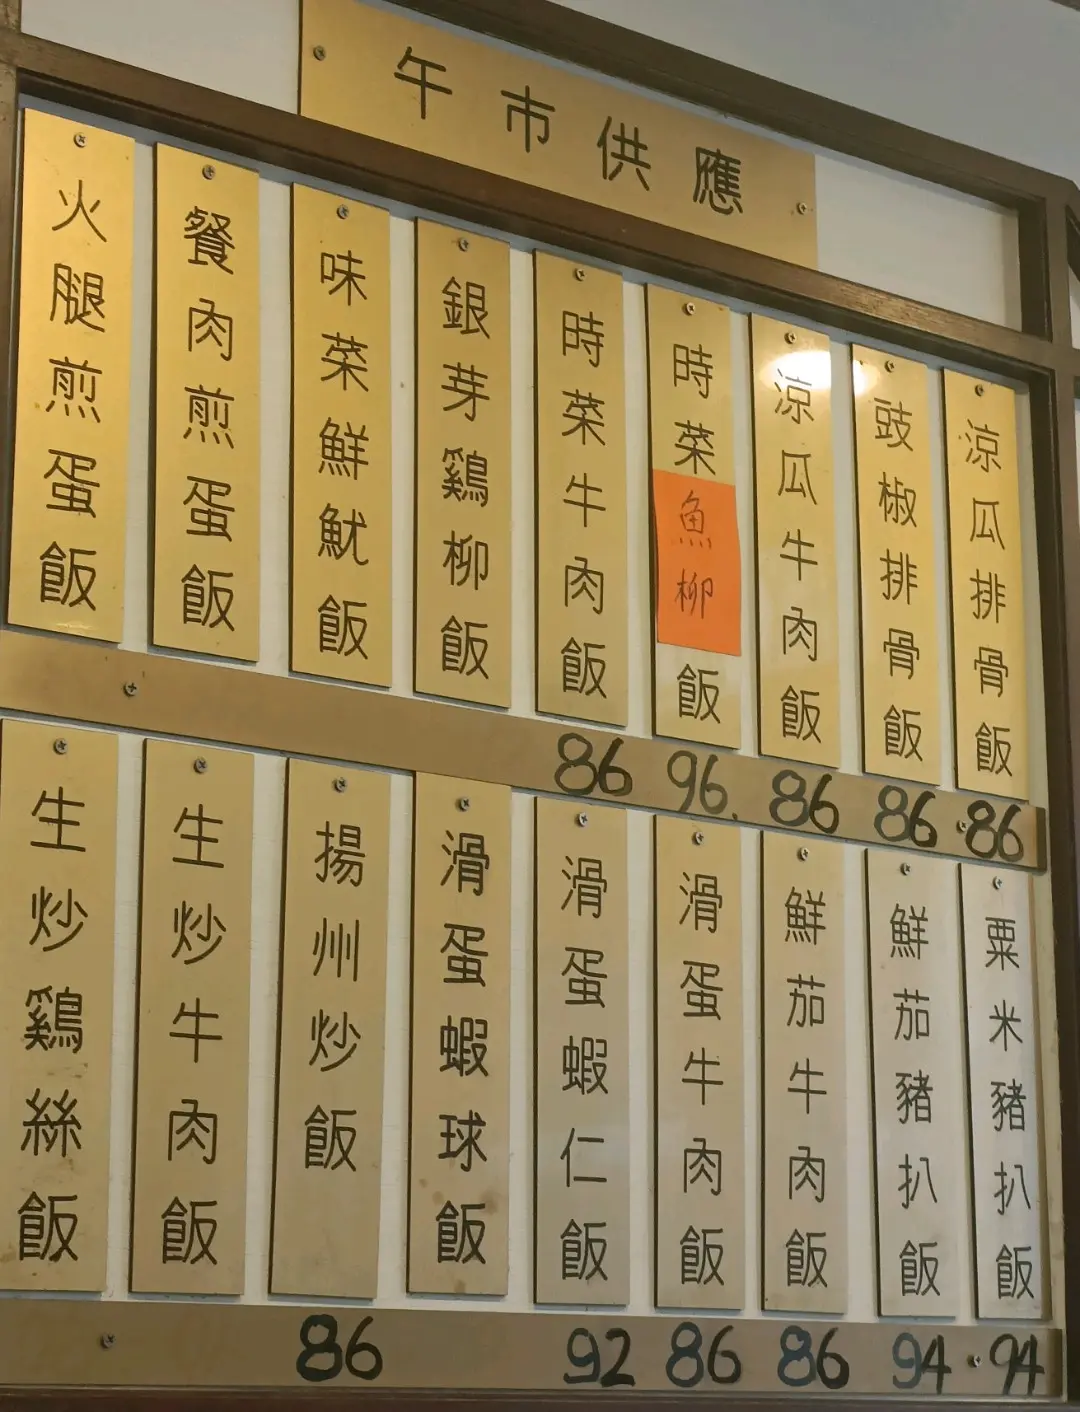 午市供應
涼瓜排骨飯
豉椒排骨飯
涼瓜牛肉飯
時菜魚柳飯
時菜牛肉飯
銀芽鷄柳飯
味菜鮮魷飯
餐肉煎蛋飯
火腿煎蛋飯
86 96. 86 86 86
粟米豬扒飯
鮮茄豬扒飯
鮮茄牛肉飯
滑蛋牛肉飯
滑蛋蝦仁飯
滑蛋蝦球飯
揚州炒飯
生炒牛肉飯
生炒鷄絲飯
86 92 86 86 94 94